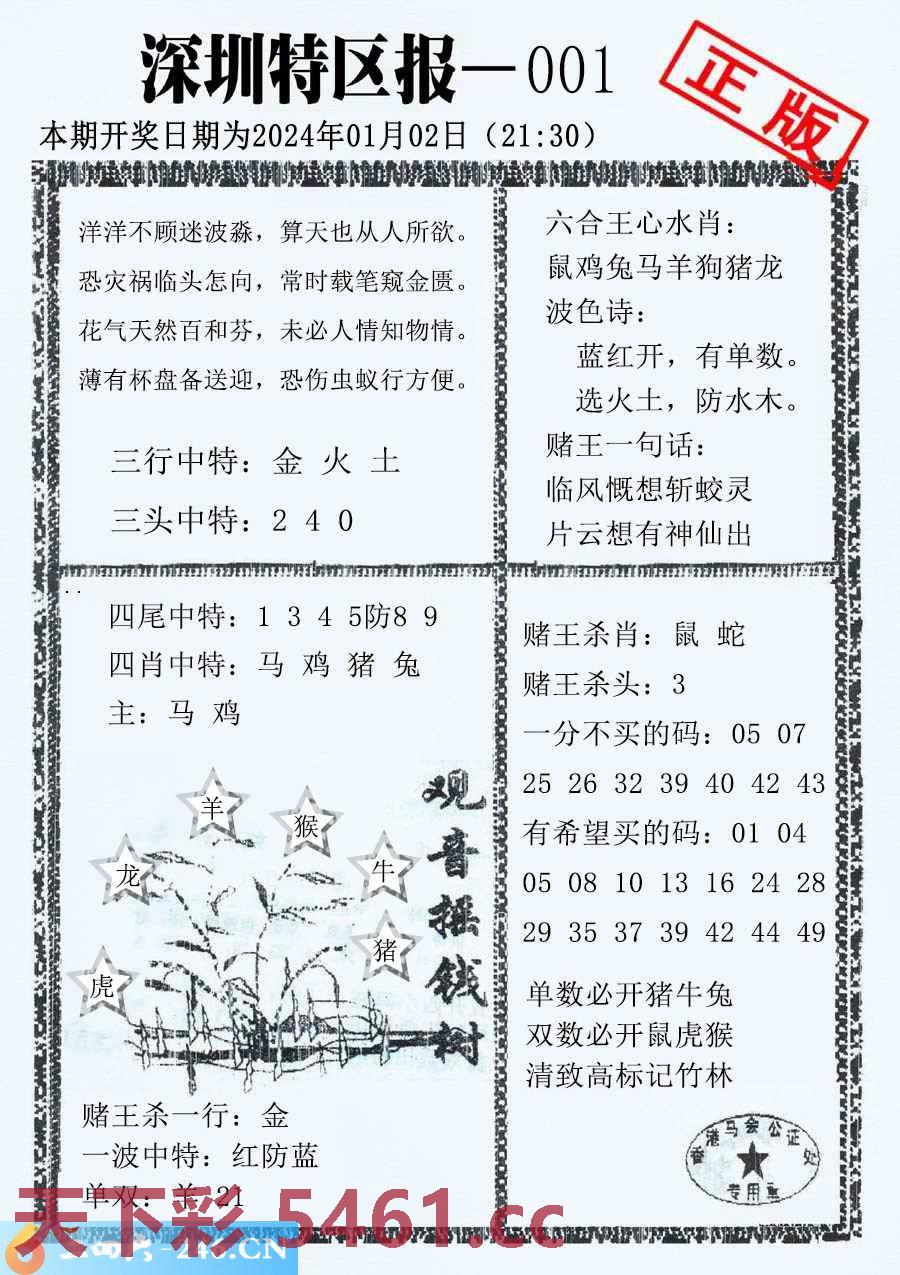 深圳特区报—001
正版
本期开奖日期为2024年01月02日（21:30）
洋洋不顾迷波淼，算天也从人所欲。
恐灾祸临头怎向，常时载笔窥金匮。
花气天然百和芬，未必人情知物情。
薄有杯盘备送迎，恐伤虫蚁行方便。
三行中特：金 火 土
三头中特：2 4 0
六合王心水肖：
鼠鸡兔马羊狗猪龙
波色诗：
蓝红开，有单数。
选火土，防水木。
赌王一句话：
临风慨想斩蛟灵
片云想有神仙出
四尾中特：1 3 4 5防8 9
四肖中特：马 鸡 猪 兔
主：马 鸡
羊
猴
龙
牛
猪
虎
观音摇钱树
赌王杀一行：金
一波中特：红防蓝
单双：羊 21
赌王杀肖：鼠 蛇
赌王杀头：3
一分不买的码：05 07
25 26 32 39 40 42 43
有希望买的码：01 04
05 08 10 13 16 24 28
29 35 37 39 42 44 49
单数必开猪牛兔
双数必开鼠虎猴
清致高标记竹林
香港马会公证处
专用章
天下彩 5461.cc
-246.CN